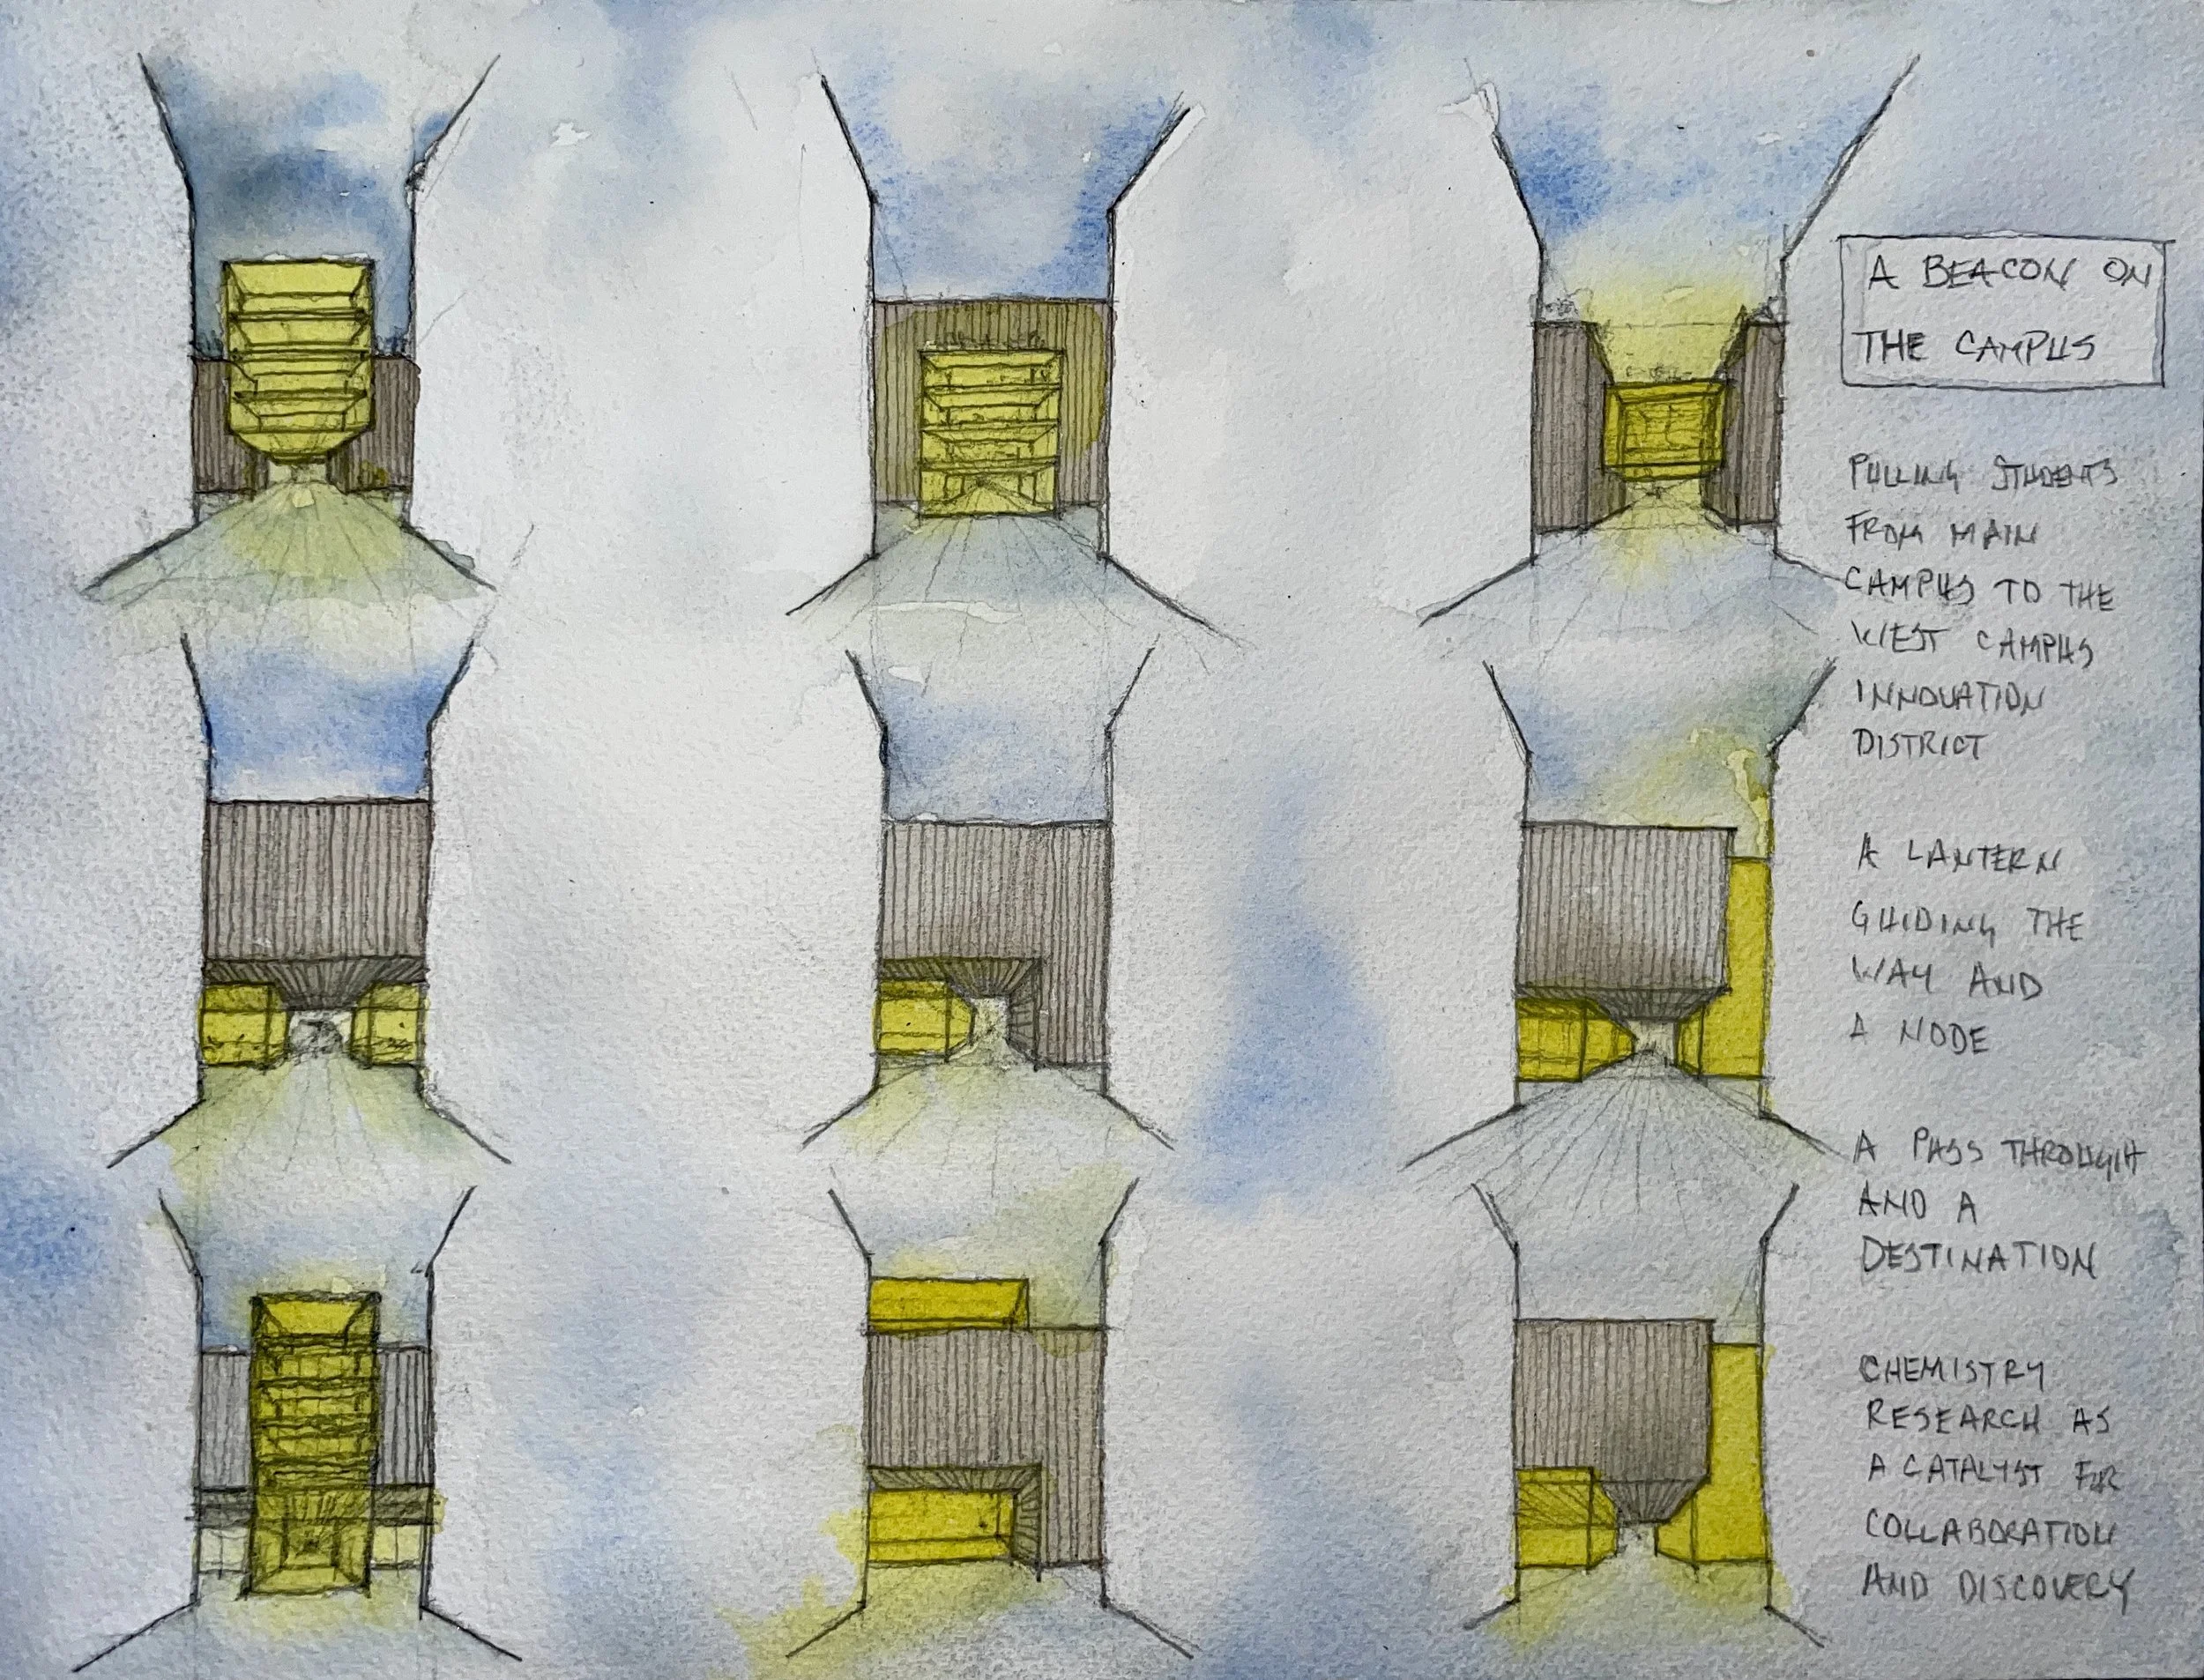 A BEACON ON
THE CAMPUS
PULLING STUDENTS
FROM MAIN
CAMPUS TO THE
WEST CAMPUS
INNOVATION
DISTRICT
A LANTERN
GUIDING THE
WAY AND
A NODE
A PASS THROUGH
AND A
DESTINATION
CHEMISTRY
RESEARCH AS
A CATALYST FOR
COLLABORATION
AND DISCOVERY